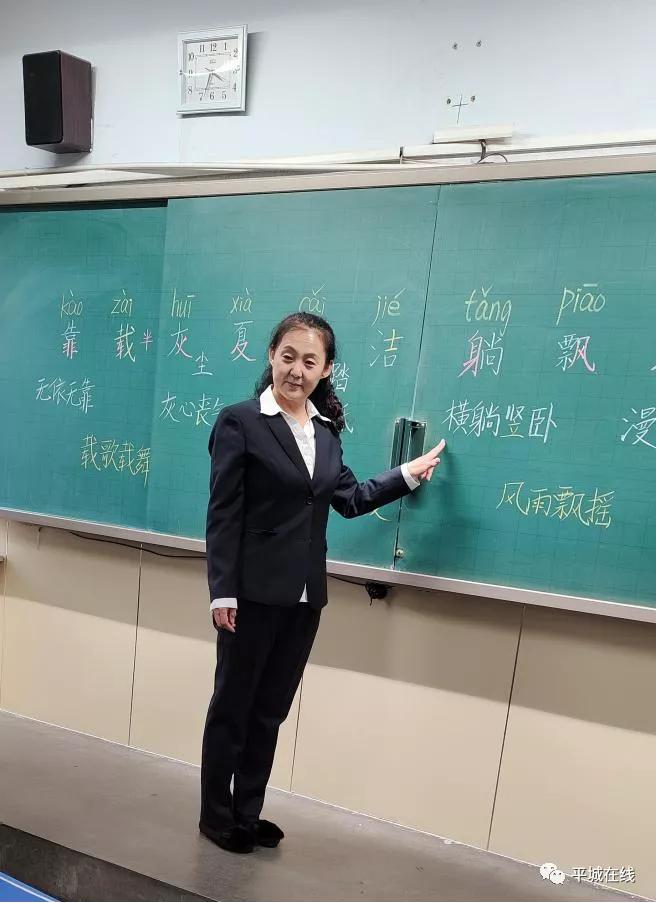 kào zài huī xià cǎi jié tǎng piāo
靠 载 半 灰 尘 夏 踏 洁 躺 飘
无依无靠 灰心丧气 横躺竖卧 漫
载歌载舞 风雨飘摇
平城在线